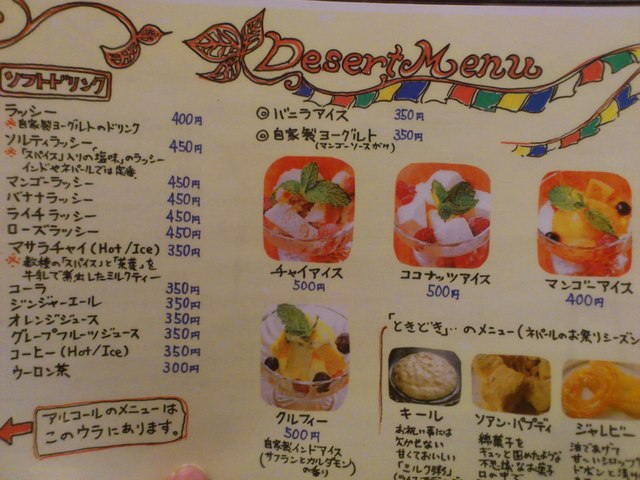 Desert Menu
ソフトドリンク
ラッシー 400円
※自家製ヨーグルトのドリンク
ソルティラッシー 450円
※「スパイス」入りの塩味」のラッシー
インドやネパールでは定番
マンゴーラッシー 450円
バナナラッシー 450円
ライチラッシー 450円
ローズラッシー 450円
マサラチャイ(Hot/Ice) 350円
※数種の「スパイス」と「茶葉」を
牛乳で煮出したミルクティー
コーラ 350円
ジンジャーエール 350円
オレンジジュース 350円
グレープフルーツジュース 350円
コーヒー(Hot/Ice) 350円
ウーロン茶 300円
アルコールのメニューは
このウラにあります。
◎バニラアイス 350円
◎自家製ヨーグルト 350円
(マンゴーソースがけ)
チャイアイス
500円
ココナッツアイス
500円
マンゴーアイス
400円
クルフィー
500円
自家製インドアイス
(サフランとカルダモン)
の香り
「ときどき」…のメニュー(ネパールのお祭りシーズン
キール
お祝い事には
欠かせない
甘くておいしい
「ミルク粥」
ソアン・パプディ
綿菓子を
ギュッと固めたような
不思議なお菓子
口の中で
ジャレビー
油であげて
甘〜いシロップ
ドボンと漬け